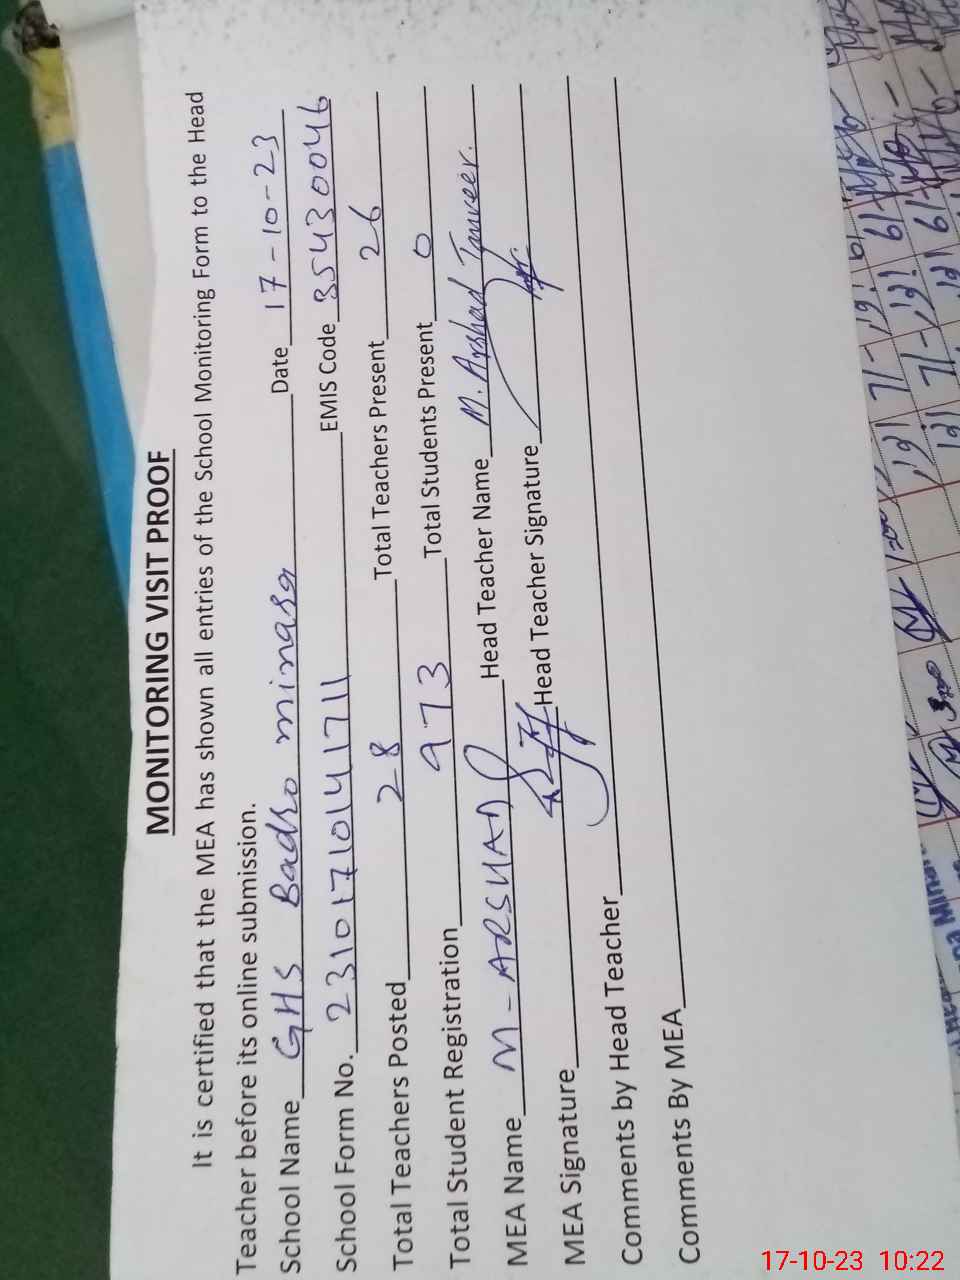 MONITORING VISIT PROOF
It is certified that the MEA has shown all entries of the School Monitoring Form to the Head
Teacher before its online submission.
School Name GHS Badro minara Date 17-10-23
School Form No. 23101710141711 EMIS Code 35430046
Total Teachers Posted 28 Total Teachers Present 26
Total Student Registration 973 Total Students Present 0
MEA Name M-ARSHAD Head Teacher Name M. Arshad Tanveer.
MEA Signature Head Teacher Signature
Comments by Head Teacher
Comments By MEA
17-10-23 10:22